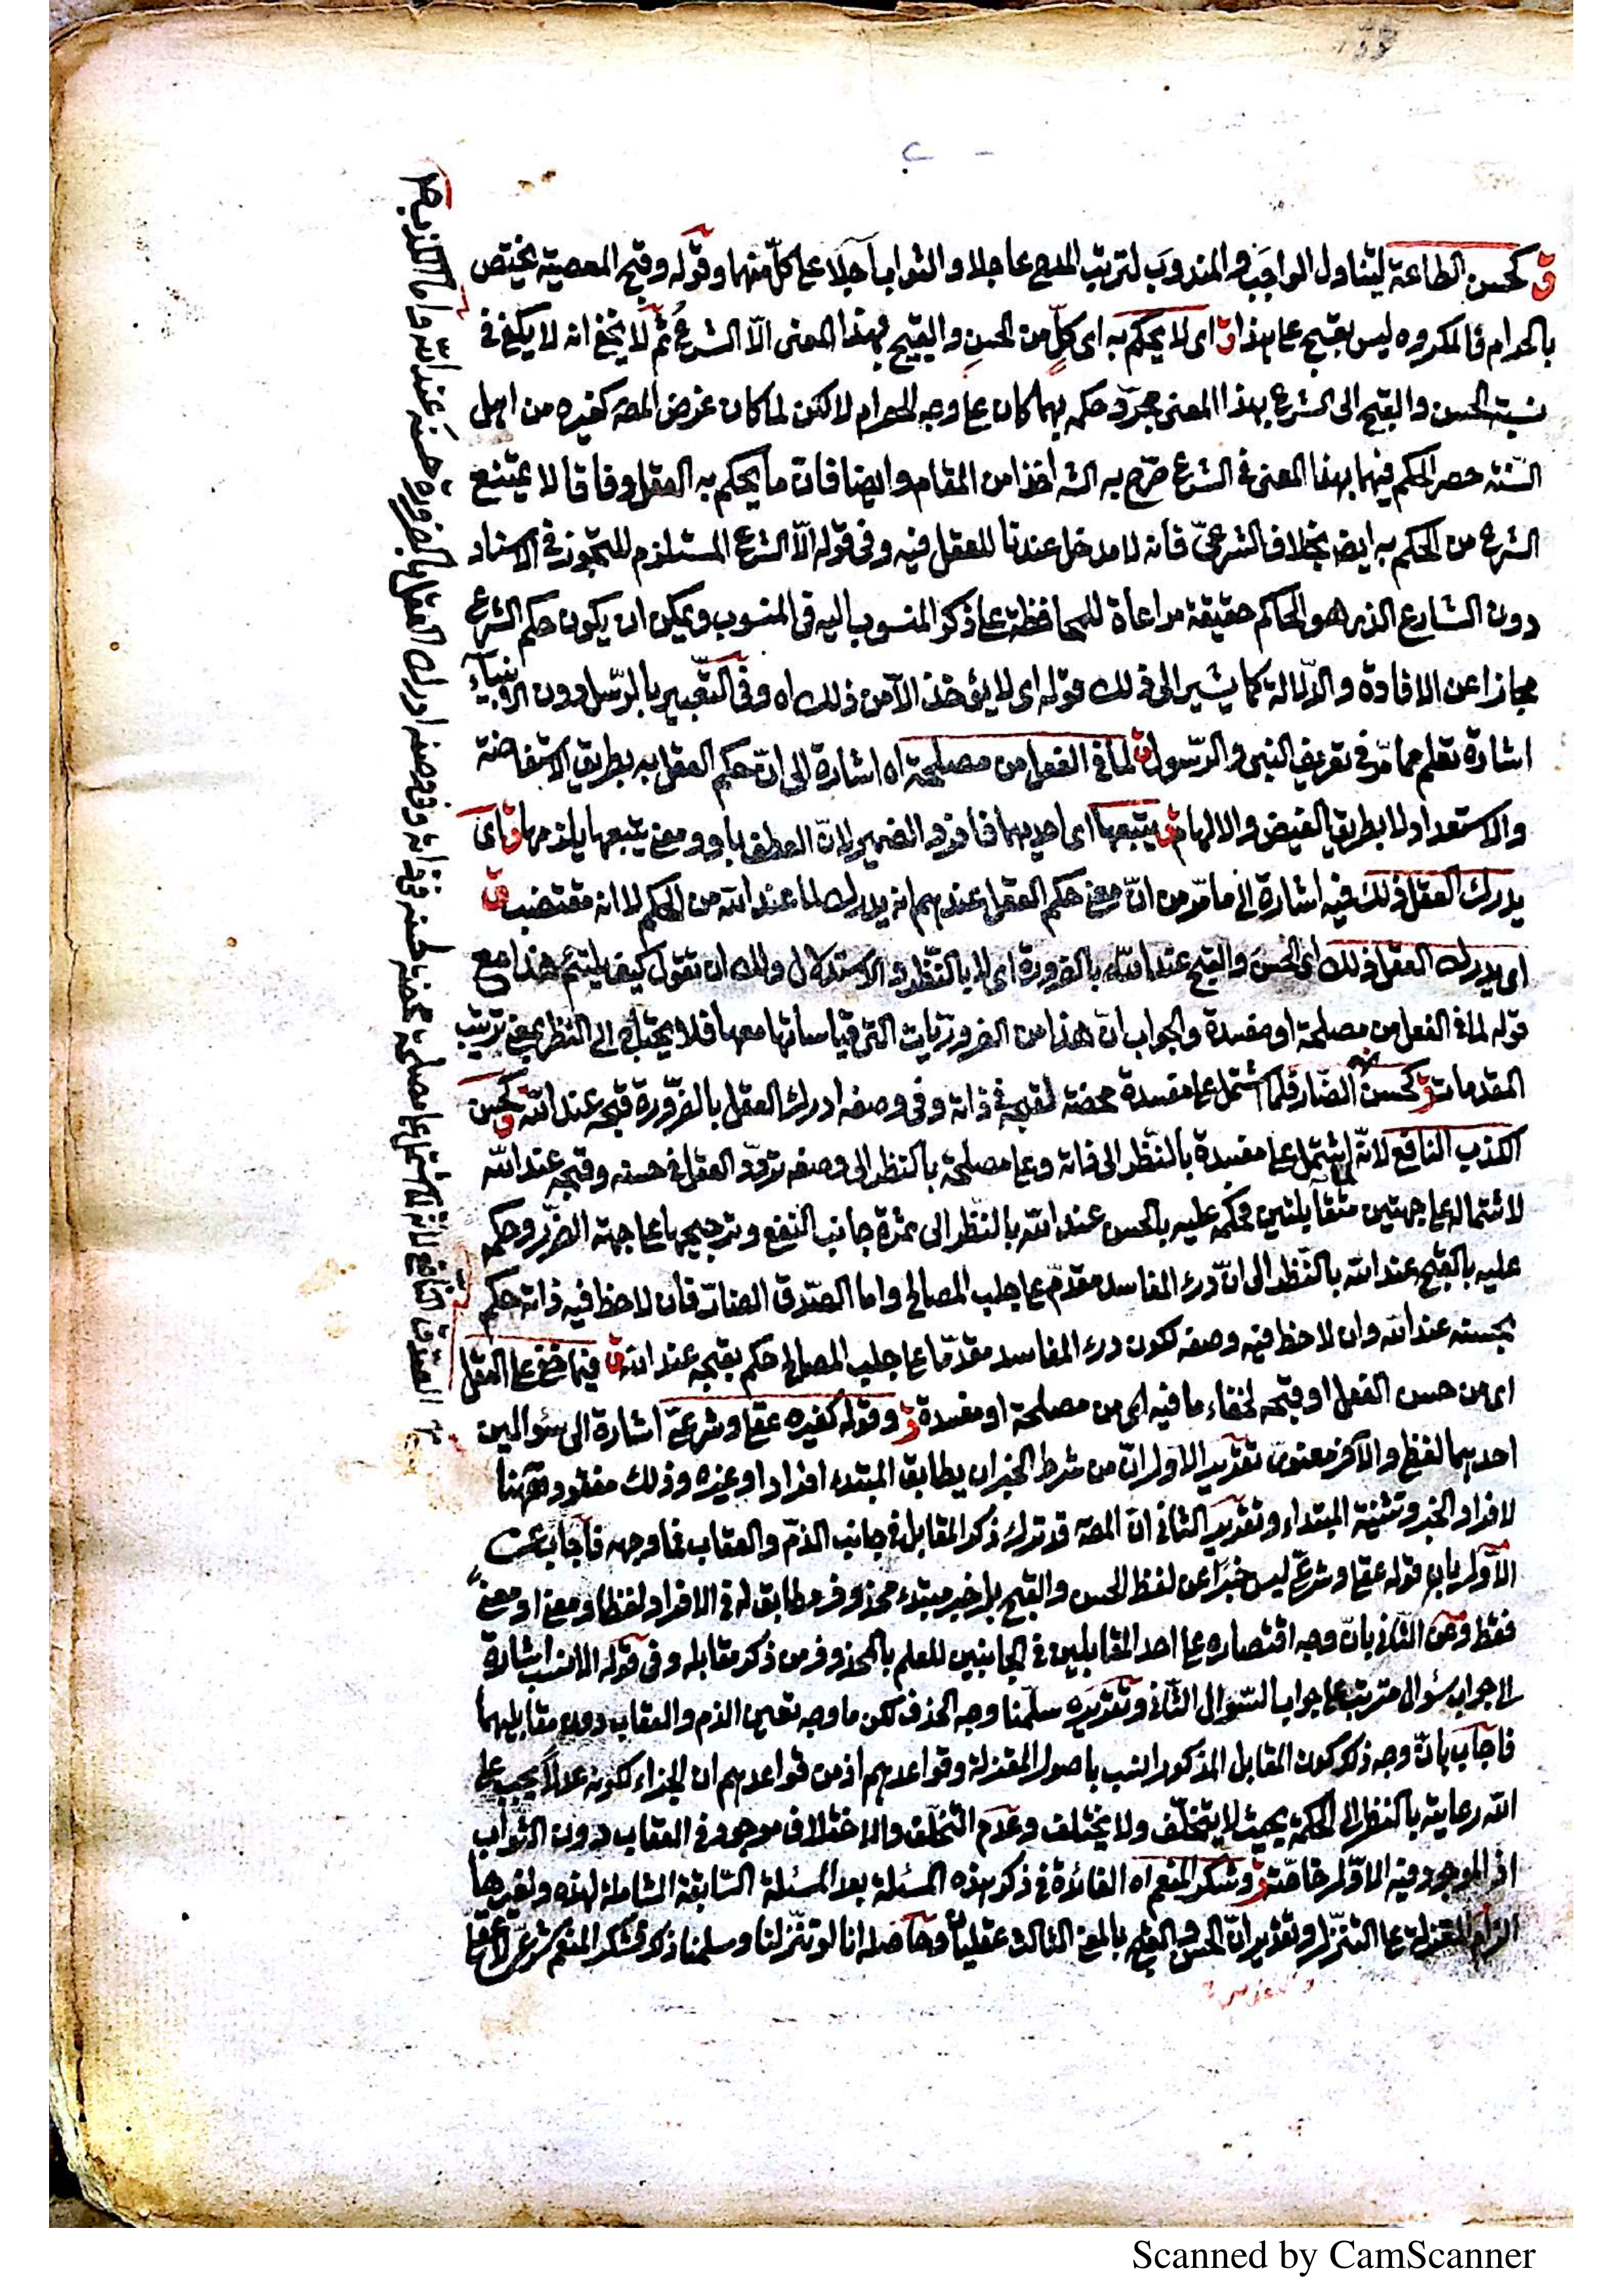 ق كحسن الطاعة ليتناول الواجب والمندوب لترتب المدح عاجلا والثواب آجلا على كل منهما وقوله وقبح المعصية يختص
بالحرام فالمكروه ليس بقبيح على هذا ق اى لا يحكم به اى كلٍّ من الحسنِ والقبيح بهذا المعنى الّا الشرعُ ثم لا يخفى انه لا يكفى فى
نسبة الحسن والقبح الى الشرع بهذا المعنى مجرّد حكمه بهما كان على وجه الحصر ام لا لكن لما كان غرض المصـ كغيره من اهل
السّنّة حصر الحكم فيهما بهذا المعنى فى الشرع صرّح به الشـ اخذا من المقام وايضا فان ما يحكم به العقل وفاقا لا يمتنع
الشرع من الحكم به ايضـ بخلاف الشرعىّ فانه لا مدخل عندنا للعقل فيه وفى قوله الّا الشرع المستلزم للتجوز فى الاسناد
دون الشارع الذى هو الحاكم حقيقة مراعاة للمحافظة على ذكر المنسوب اليه فى المنسوب ويمكن ان يكون حكم الشرع
مجازا عن الافادة والدّلالة كما يشير الى ذلك قوله اى لا يؤخذ الّا من ذلك اه وفى التّعبير بالرّسل دون الانبياء
اشارة تعلم مما مرّ فى تعريف النبى والرّسول ق لما فى الفعل من مصلحة اه اشارة الى انّ حكم العقل به بطريق الاستفاضة
والاستعداد لا بطريق الفيض والالهام ق يتبعها اى احديهما فافرد الضمير لانّ العطف باو ومعنى يتبعها يلزمها ق اى
يدرك العقل ذلك فيه اشارة الى ما مرّ من انّ معنى حكم العقل عندهم انه يدرك لما عند الله من الحكم لا انه مقتضيه ق
اى يدرك العقل ذلك اى الحسن والقبح عند الله بالضرورة اى لا بالنّظر والاستدلال ولك ان تقول كيف يلتئم هذا مع
قوله لما فى الفعل من مصلحة او مفسدة والجواب انّ هذا من الضروريات التى قياساتها معها فلا يحتاج الى النظر بمعنى ترتيب
المقدمات ق كحسن الضار فلما اشتمل على مفسدة محضة لقبحه فى ذاته وفى وصفه ادرك العقل بالضّرورة قبحه عند الله ق كحسن
الكذب النافع لانّه لما اشتمل على مفسدة بالنّظر الى ذاته وعلى مصلحة بالنظر الى وصفه تردّد العقل فى حسنه وقبحه عند الله
لاشتماله على جهتين متقابلتين فحكمه عليه بالحسن عند الله بالنظر الى جانب النفع وترجيحها على جهة الضرر وحكمه
عليه بالقبح عند الله بالنّظر الى انّ درء المفاسد مقدّم على جلب المصالح واما الصّدق الضارّ فان لاحظ فيه ذاته حكم
بحسنه عند الله وان لاحظ فيه وصفه لكون درء المفاسد مقدّما على جلب المصالح حكم بقبحه عند الله ق فيما خفى على العقل
اى من حسن الفعل او قبحه لخفاء ما فيه اى من مصلحة او مفسدة ق وقوله كغيره عقلى وشرعىّ اشارة الى سئوالين
احديهما لفظى والآخر معنوى تقدير الاول انّ من شرط الخبر ان يطابق المبتدء افرادا وغيره وذلك مفقود ههنا
لافراد الخبر وتثنية المبتداء وتقدير الثانى انّ المصـ قد ترك ذكر المقابل فى جانب الذمّ والعقاب فما وجهه فاجاب عن
الاوّل بان قوله عقلى وشرعىّ ليس خبراً عن لفظ الحسن والقبح بل خبر مبتدء محذوف مطابق له فى الافراد لفظا ومعنى او معنى
فقط وعن الثّانى بانّ وجه اقتصاره على احد المقابلين فى الجانبين للعلم بالمحذوف من ذكر مقابله وفى قوله الانسب اشارة
الى جواب سئوال مترتب على جواب السّئوال الثّانى وتقديره سلّمنا وجه الحذف لكن ما وجه تعيين الذم والعقاب دون مقابليهما
فاجاب بانّ وجه ذكر كون المقابل المذكور انسب باصول المعتزلة وقواعدهم اذ من قواعدهم ان الجزاء لكونه عدلا يجب على
الله رعايته بالنظر الى الحكمة بحيث لا يتخلّف ولا يختلف وعدم التخلّف والاختلاف موجود فى العقاب دون الثواب
اذ الموجود فيه الاوّل خاصّة ق وشكر المنعم اه الفائدة فى ذكر هذه المسئلة بعد المسئلة السّابقة الشاملة لهذه ولغيرها
الزام المعتزلة على التنزّل وتقدير انّ الحسن والقبح بالمعنى الثالث عقليان وحاصله انا لو تنزّلنا وسلمنا ذلك فشكر المنعم شرعىّ لا عقلى
الصدق النافع لانه لما اشتمل على مصلحة محضة لحسنه فى ذاته وفى وصفه ادرك العقل بالضرورة حسنه عند الله واما الكذب
Scanned by CamScanner